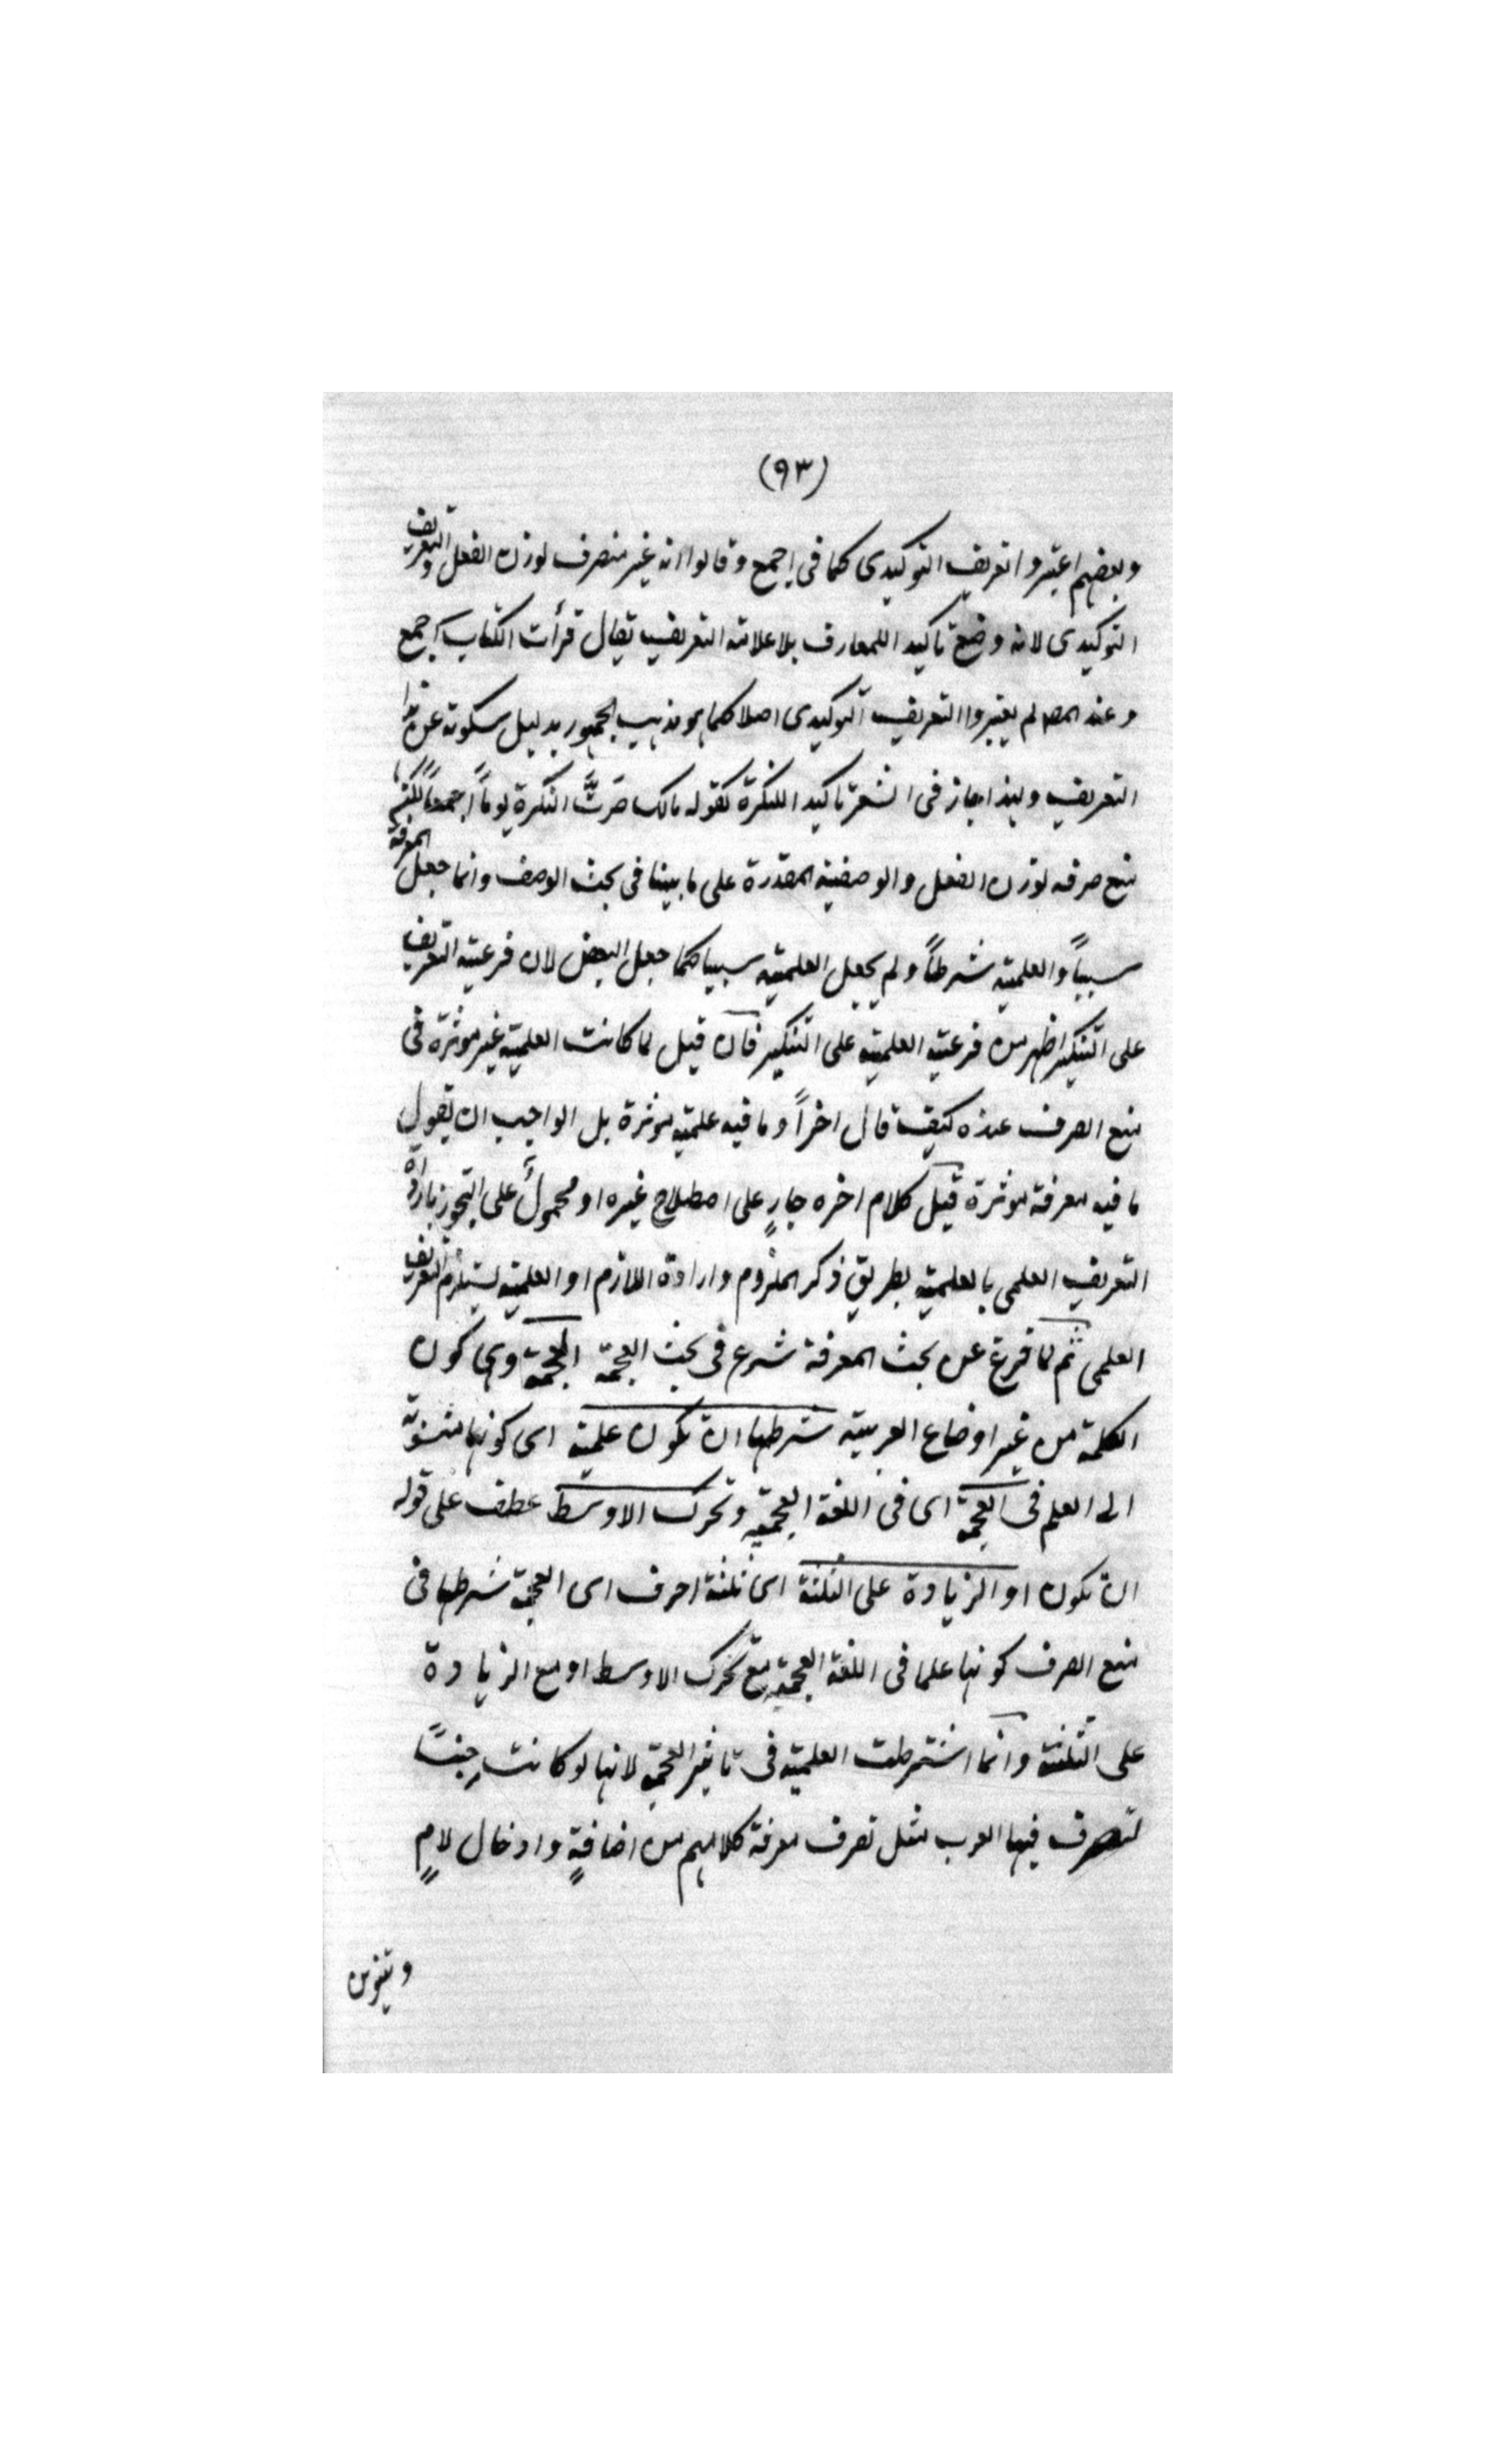 (٩٣)
وبعضهم اعتبروا تعريف التوكيدى كما فى اجمع وقالوا انه غير منصرف لوزن الفعل والتعريف
التوكيدى لانه وضع تاكيد اللمعارف بلا علامة التعريف يقال قرأت الكتاب اجمع
وعند المصـ لم يعتبروا التعريف التوكيدى اصلا كما هو مذهب الجمهور بدليل سكوته عن هذا
التعريف ولهذا جاز فى الشعر تاكيد اللنكرة كقوله مالك النكرة يوماً اجمعاً
منع صرفه لوزن الفعل والوصفية المقدرة على ما بينا فى بحث الوصف وانما جعل المعرفة
سبباً والعلمية شرطاً ولم يجعل العلمية سببا كما جعل البعض لان فرعية التعريف
على التنكير اظهر من فرعية العلمية على التنكير فان قيل لما كانت العلمية غير مؤثرة فى
منع الصرف عنده كيف قال اخراً وما فيه علمية مؤثرة بل الواجب ان يقول
ما فيه معرفة مؤثرة قيل كلام اخره جارٍ على اصطلاح غيره او محمولٌ على التجوز بارادة
التعريف العلمى بالعلمية بطريق ذكر الملزوم وارادة اللازم او العلمية يستلزم التعريف
العلمى ثم لما فرغ عن بحث المعرفة شرع فى بحث العجمة العجمة وهى كون
الكلمة من غير اوضاع العربية شرطها ان تكون علمية اى كونها منسوبة
الى العلم فى العجمة اى فى اللغة العجمية وتحرك الاوسط عطف على قوله
ان تكون او الزيادة على الثلثة اى ثلثة احرف اى العجمة شرطها فى
منع الصرف كونها علما فى اللغة العجمية مع تحرك الاوسط او مع الزيادة
على الثلثة وانما اشترطت العلمية فى تاثير العجمة لانها لو كانت جنساً
لتصرف فيها العرب مثل تصرف معرفة كلامهم من اضافةٍ وادخال لامٍ
وتنوين